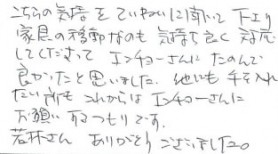 こちらの気持をていねいに聞いて下さり
家具の移動なのも気持良く対応
してくださって エンチョーさんにたのんで
良かったと思いました。他にも手を入れ
たい所もこれからはエンチョーさんに
お願いするつもりです。
若林さん ありがとうございました。